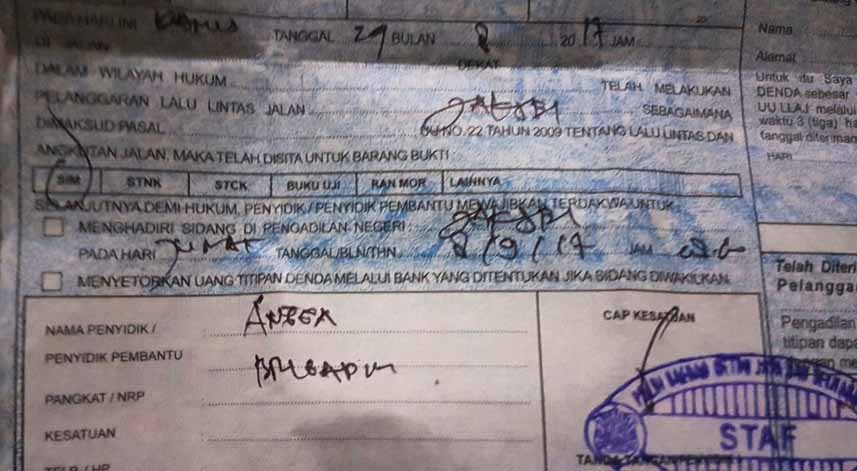 PADA HARI INI KAMIS TANGGAL 29 BULAN 8 2017 JAM
DI JALAN DEKAT
DALAM WILAYAH HUKUM TELAH MELAKUKAN
PELANGGARAN LALU LINTAS JALAN SEBAGAIMANA
DIMAKSUD PASAL UU NO. 22 TAHUN 2009 TENTANG LALU LINTAS DAN
ANGKUTAN JALAN, MAKA TELAH DISITA UNTUK BARANG BUKTI
SIM STNK STCK BUKU UJI RAN MOR LAINNYA
SELANJUTNYA DEMI HUKUM, PENYIDIK / PENYIDIK PEMBANTU MEWAJIBKAN TERDAKWA UNTUK
MENGHADIRI SIDANG DI PENGADILAN NEGERI :
PADA HARI JUMAT TANGGAL/BLN/THN 8/9/17 JAM
MENYETORKAN UANG TITIPAN DENDA MELALUI BANK YANG DITENTUKAN JIKA SIDANG DIWAKILKAN.
NAMA PENYIDIK /
PENYIDIK PEMBANTU
PANGKAT / NRP
KESATUAN
TELP / HP
CAP KESATUAN
STAF
Nama
Alamat
Untuk itu Saya
DENDA sebesar
UU LLAJ melalui
waktu 3 (tiga) ha
tanggal diteriman
HARI
Telah Diteri
Pelangga
Pengadilan
titipan dapa